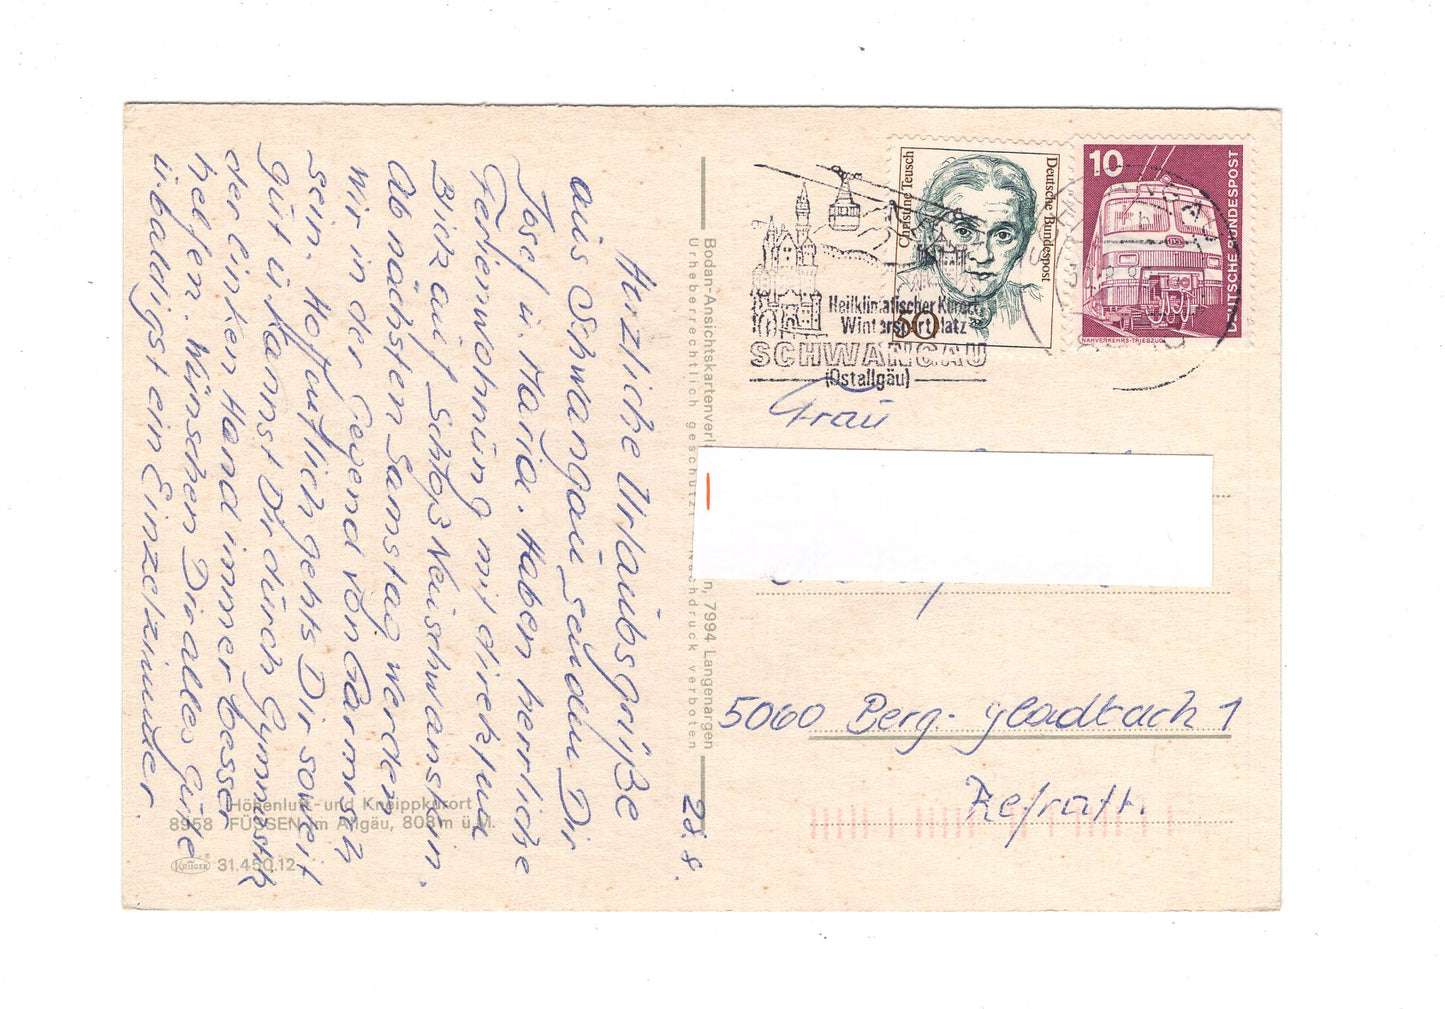 Herzliche Urlaubsgrüße
aus Schwangau senden Dir
Josef u. Maria. Haben herrliche
Ferienwohnung mit direktem
Blick auf Schloß Neuschwanstein.
Ab nächsten Samstag werden
wir in der Gegend von Garmisch
sein. Hoffentlich gehts Dir soweit
gut u. kannst Dir durch Gymnastik
der linken Hand immer besser
helfen. Wünschen Dir alles Gute
u. baldigst ein Einzelzimmer.
28.8.
Höhenluft- und Kneippkurort
8958 FÜSSEN im Allgäu, 808 m ü. M.
KRÜGER ® 31.450.12
Bodan-Ansichtskartenverl
n, 7994 Langenargen
Urheberrechtlich geschützt - Nachdruck verboten
Heilklimatischer Kurort
Wintersportplatz
SCHWANGAU
(Ostallgäu)
Christine Teusch
Deutsche Bundespost
50
10
DEUTSCHE BUNDESPOST
NAHVERKEHRS-TRIEBZUG
Frau
5060 Berg.-Gladbach 1
Refrath.